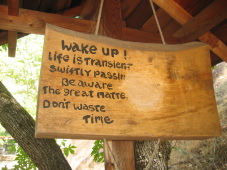 Wake up!
Life is transient
Swiftly passing
Be aware
The great matter
Don't waste
Time